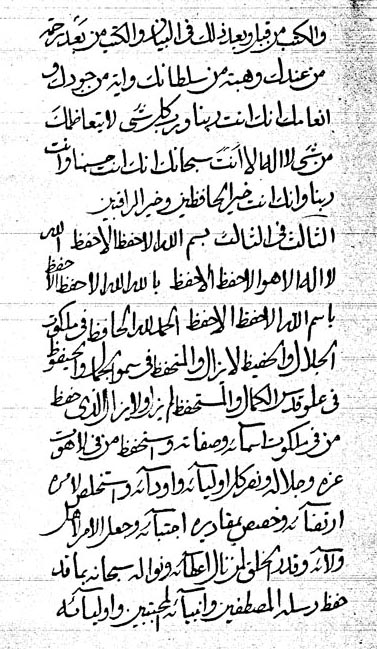 والكتب من قبل وبعد ذلك فى البيان والكتب من بعد رحمة
من عندك وهبة من سلطانك واية من جودك و
انعامك انك انت ربنا ورب كل شئ لا يتعاظمك
من شئ لا اله الا انت سبحانك انك انت حسبنا وانت
ربنا وانك انت خير الحافظين وخير الراقبين
الثالث فى الثالث بسم الله الاحفظ الاحفظ الله
لا اله الا هو الاحفظ الاحفظ بالله الله الاحفظ الاحفظ
باسم الله الاحفظ الاحفظ الحمد لله الحافظ فى ملكوت
الجلال والحفيظ لا يزال والمتحفظ فى سمو الجمال والحيفوظ
فى علو قدس الكمال والمستحفظ لم يزل ولا يزال الذى حفظ
من فى ملكوت اسمائه وصفاته واستحفظ من فى لاهوت
عزه وجلاله ونصر كل اوليائه واودائه واستخلص لامره
ارتضائه وخصص بمقاديره اجتبائه وجعل الامر اهل
ولائه وقدر الخلق لمن نال اعطائه ونواله سبحانه بما قد
حفظ رسله المصطفين وانبيائه المجتبين واوليائه